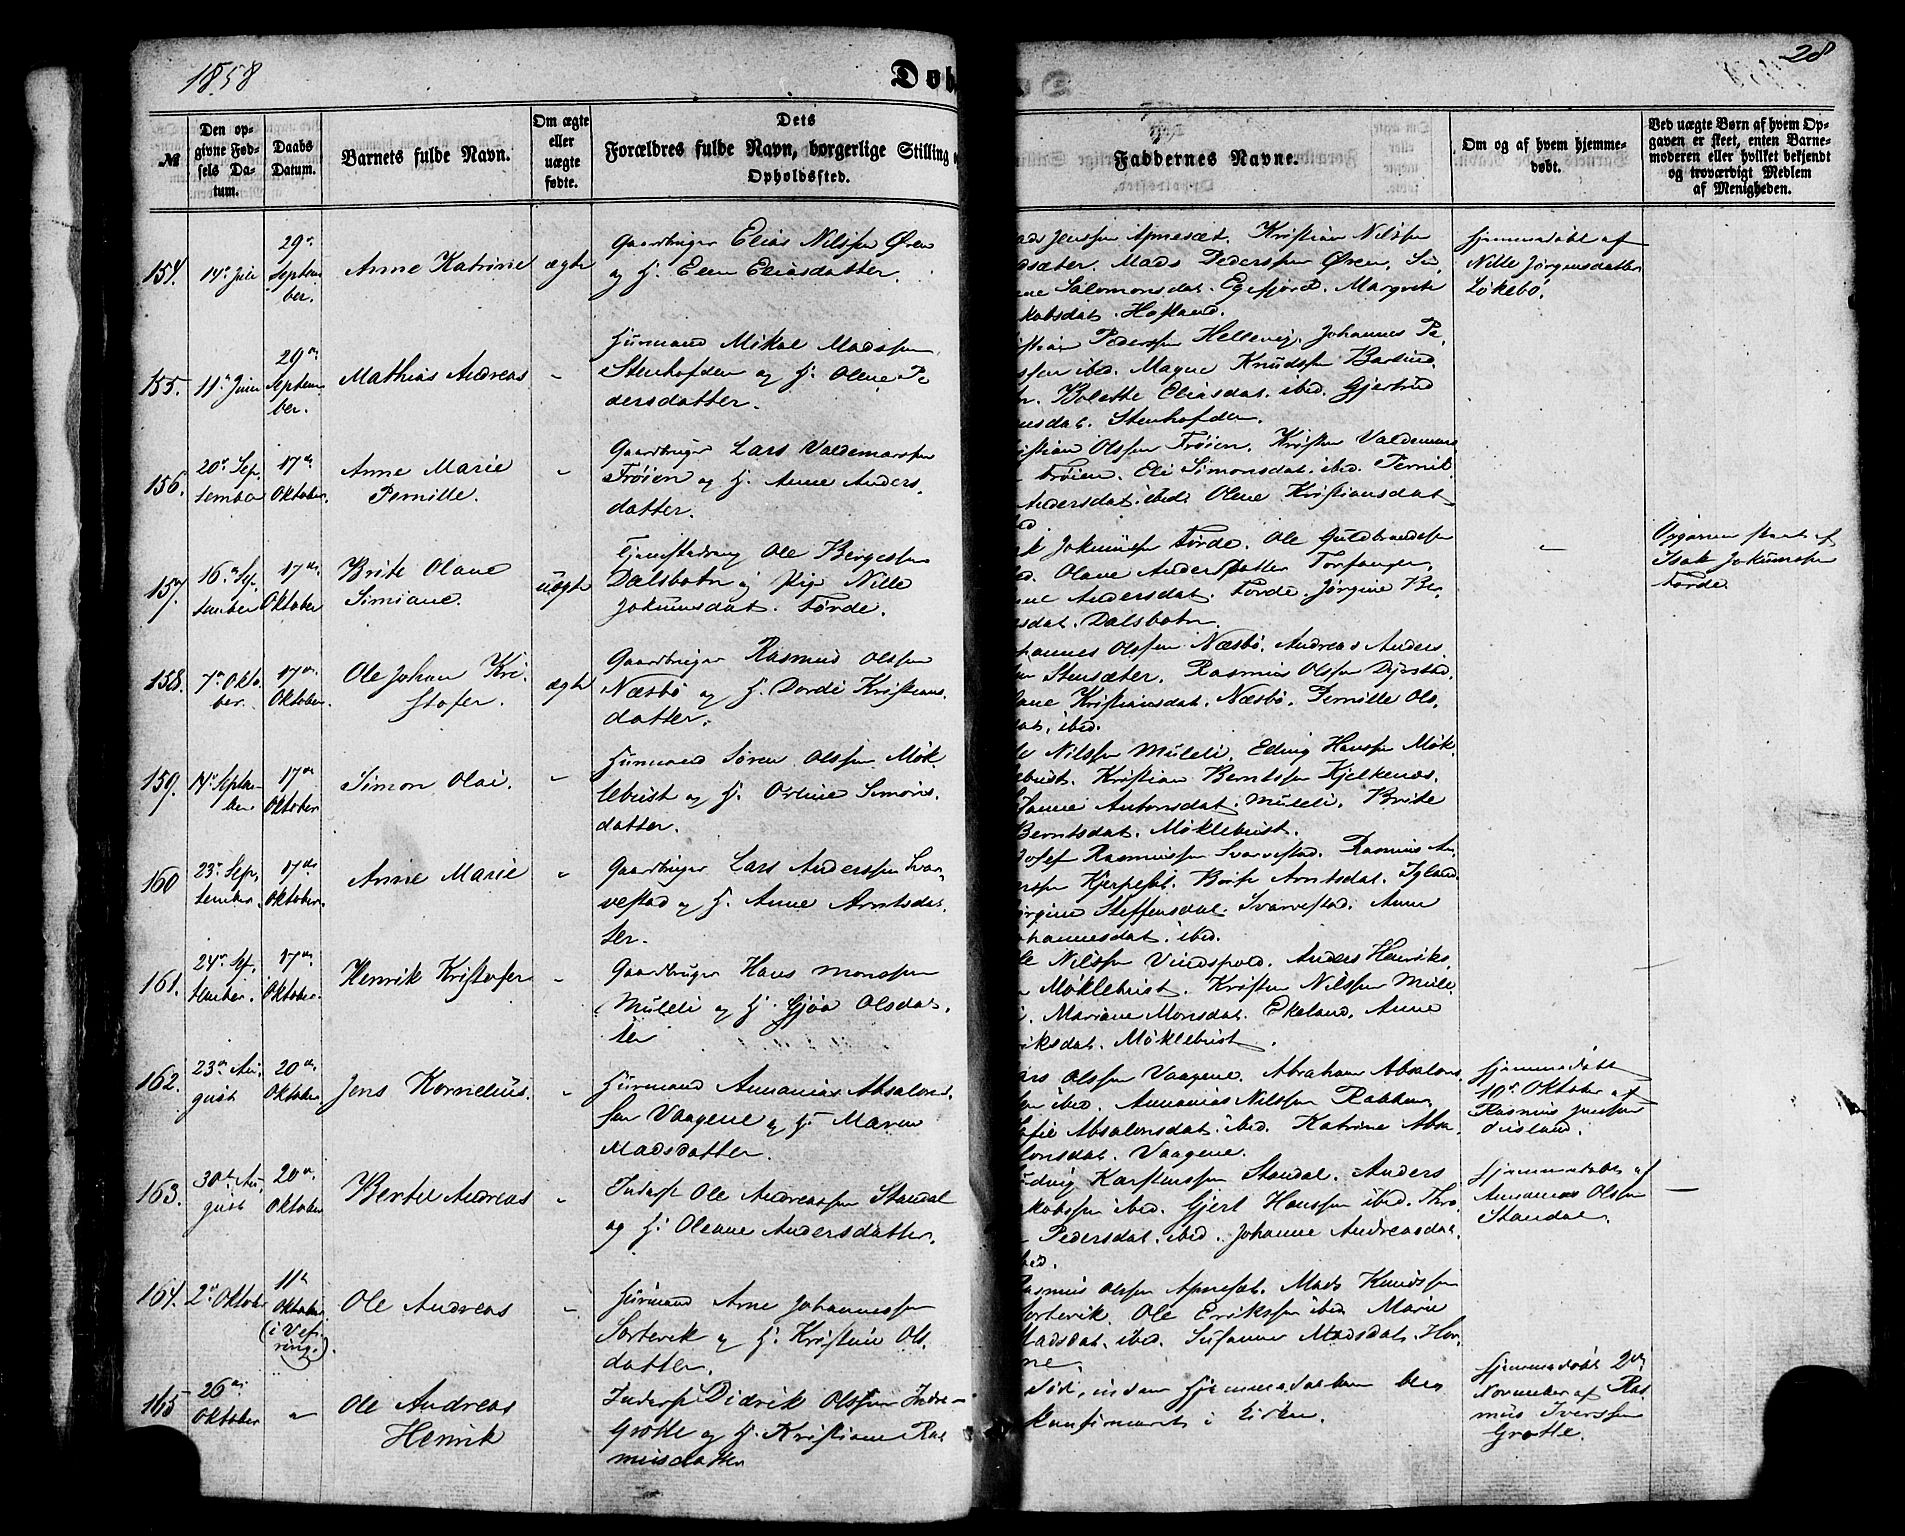 1858
Døb
28
№
Den opgivne Fødsels Datum.
Daabs Datum.
Barnets fulde Navn.
Om ægte eller uægte fødte.
Dets Forældres fulde Navn, borgerlige Stilling
Opholdssted.
Faddernes Navne.
Om og af hvem hjemmedøbt.
Ved uægte Børn af hvem Opgaven er skeet, enten Barnemoderen eller hvilket bekjendt og troværdigt Medlem af Menigheden.
154.
14de Juli
29de September.
Anne Katrine
ægte
Gaardbruger Elias Nilssen Øren
og H. Elen Eliasdatter.
Jenssen Apnesæt. Kristian Nilssen
sæter. Mads Pederssen Øren.
Salomonsdat. Egefjord. Margrete
kobsdat. Hofland.
Hjemmedøbt af
Nille Jørgensdatter
Løkebø.
155.
11te Juni
29de September.
Mathias Andreas
Huusmand Mikal Madssen
Stenhofden og H. Oline Pe
dersdatter.
Pederssen Hellevig. Johannes Pe
ssen ibd. Magne Knudssen Barlind
Bolette Eliasdat. ibd. Gjertrud
sdat. Stenhofden
156.
20de September
17de Oktober.
Anne Marie
Pernille.
Gaardbruger Lars Valdemarssen
Frøien og H. Anne Anders
datter.
istian Olssen Frøien. Kristen Valdemars
Frøien. Eli Simonsdat. ibd. Pernil
Andersdat. ibd. Oline Kristiansdat
157.
16de September
17de Oktober
Brite Olave
Simiane.
uægte
Ole Bergessen
Dalsbotn og Pige Nille
Jokumsdat. Førde.
k Jokumssen Førde. Ole Guldbrandssen
Olave Andersdatter
Andersdat. Førde. Jørgine Be
sdat. Dalsbotn.
-
Opgaven skeet af
Isak Jokumssen
Førde.
158.
7de Oktober.
17de Oktober.
Ole Johan Kri
stofer.
ægte
Gaardbruger Rasmus Olssen
Næsbø og H. Dordi Kristians
datter.
hannes Olssen Næsbø. Andreas Anders
Stensæter. Rasmus Olssen Dyrstad
Kristiansdat. Næsbø. Pernille Ols
dat. ibd.
159.
September
17de Oktober
Simon Olai.
Huusmand Søren Olssen Møk
lebust og H. Oline Simons
datter.
Nilssen Muleli. Hanssen Møk
lebust. Kristian Berntssen Kjelkenæs.
Antonsdat. Muleli. Brite
Berntsdat. Møklebust.
160
23de September.
17de Oktober.
Anne Marie
Gaardbruger Lars Anderssen Svar
vestad og H. Anne Arntsdat
ter.
Josef Rasmussen Svarvestad. Rasmus An
derssen Arntsdat. Igland
Jørgine Steffensdat. Svarvestad. Anne
Johannesdat. ibd.
161.
24de September.
17de Oktober.
Henrik Kristofer
Gaardbruger Hans Monssen
Muleli og H. Gjøa Olsdat
ter
Nilssen Vindspold. Anders Henriks
Møklebust. Kristen Nilssen Mule
Mariane Monsdat. Ekeland. Anne
riksdat. Møklebust.
162.
23de August
20de Oktober
Jens Kornelius.
Huusmand Annanias Absalons
sen Vaagene og H. Maren
Madsdatter.
Lars Olssen Vaagene. Abraham Absalons
sen ibd. Annanias Nilssen
Absalonsdat. ibd. Katrine Absa
lonsdat. Vaagene.
Hjemmedøbt
10de Oktober af
Rasmus Jenssen
163.
30te August
20de Oktober
Bertel Andreas
Inderst Ole Andreassen Standal
og H. Oleane Andersdatter.
Ludvig Karstenssen Standal. Anders
kobssen ibd. Gjert Hanssen ibd.
Pedersdat. ibd. Johanne Andreasdat.
ibd.
Hjemmedøbt af
Annanias Olssen
Standal.
164.
2de Oktober
11te
Oktober
(i Vef
ring.)
Ole Andreas
Huusmand Arne Johannessen
Sortevik og H. Kristine Ols
datter.
Rasmus Olssen Apnesæt. Mads Knudssen
Sortevik. Ole Erikssen ibd. Marie
Madsdat. ibd. Susanne Madsdat.
165
26de
Oktober
Ole Andreas
Henrik
Inderst Didrik Olssen Indre-
Grotle og H. Kristiane Ras
musdatter
død, inden hjemmedaaben blev
konfirmeret i Kirken.
Hjemmedøbt 2den
November af Ras
mus Iverssen
Grotle.